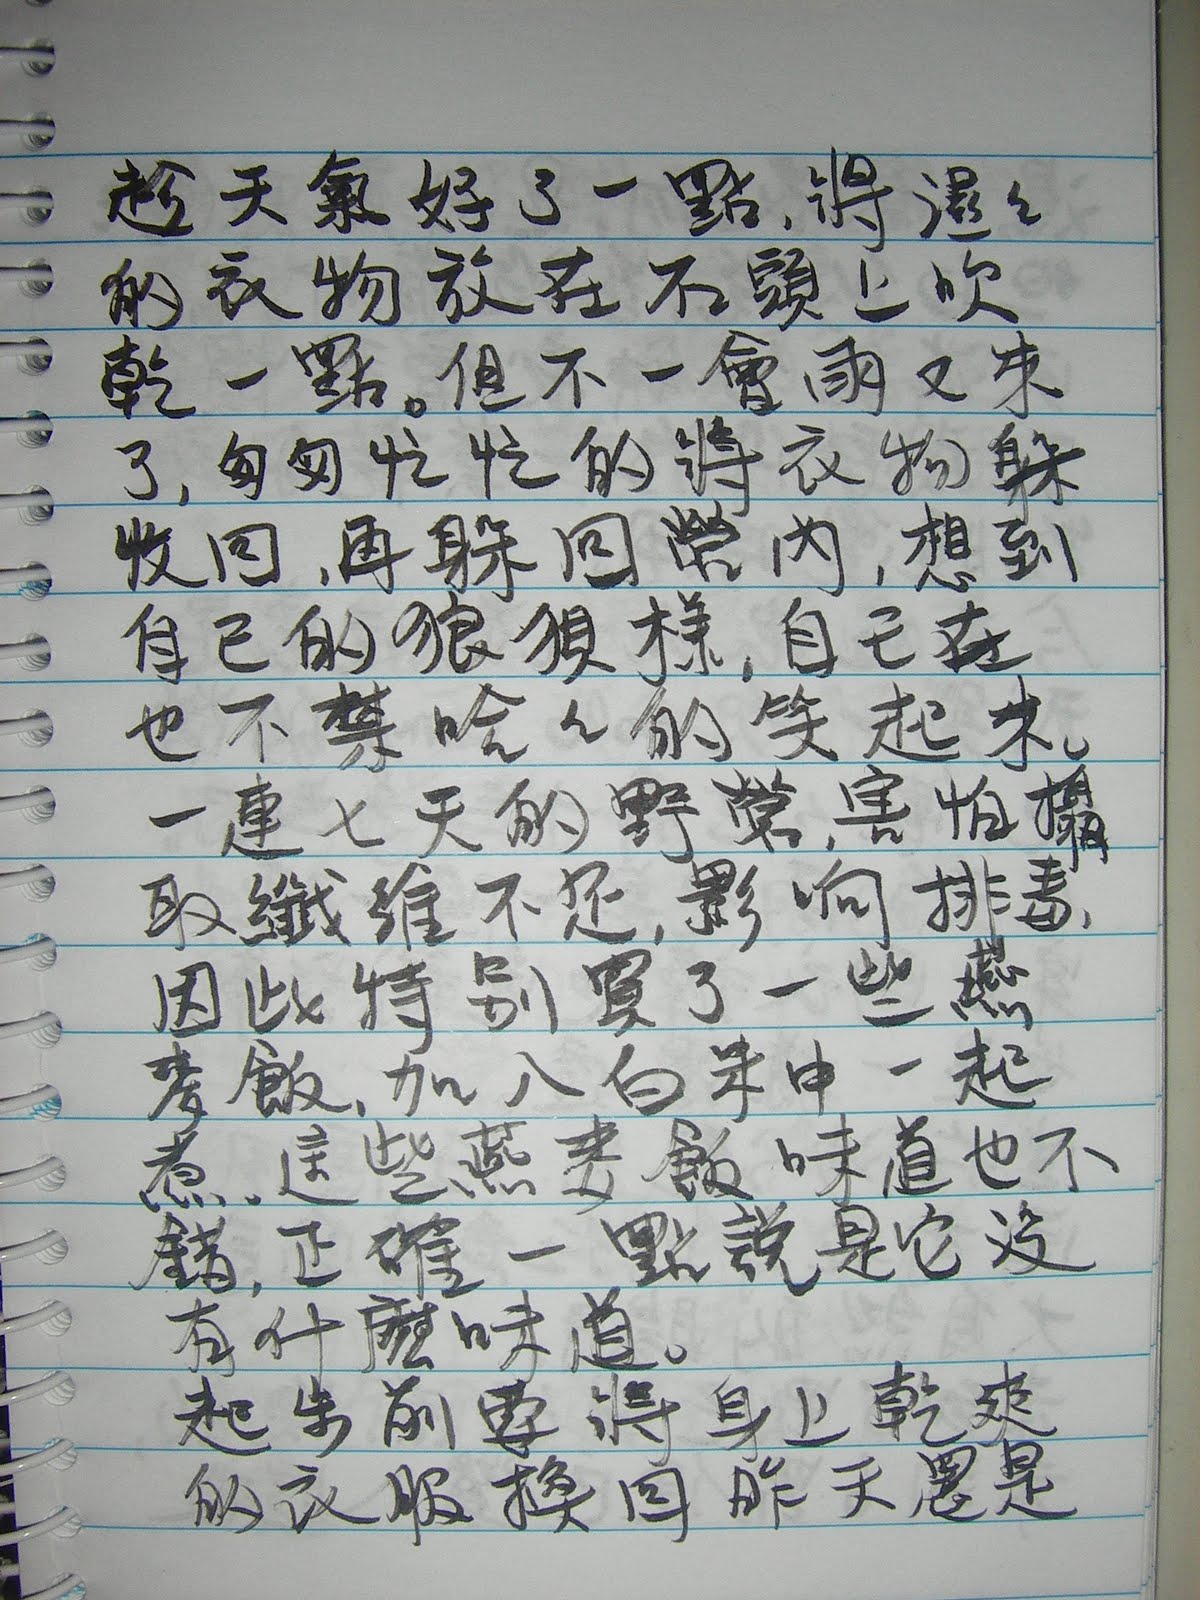 趁天氣好了一點,將濕々
的衣物放在石頭上吹
乾一點。但不一會雨又來
了,匆匆忙忙的將衣物躲
收回,再躲回營內,想到
自己的狼狽樣,自己在
也不禁哈々的笑起來。
一連七天的野營,害怕攝
取纖維不足,影响排毒,
因此特別買了一些燕
麥飯,加入白米中一起
煮。這些燕麥飯味道也不
錯,正確一點說是它没
有什麼味道。
起步前要將身上乾爽
的衣服換回昨天還是